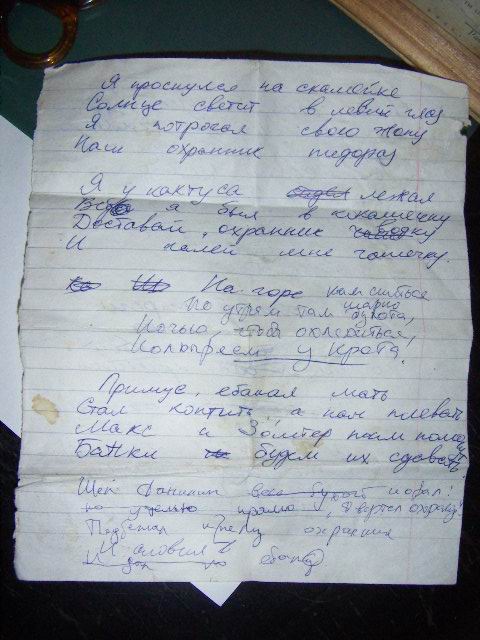 Я проснулся на скамейке
Солнце светит в левый глаз
Я потрогал свою жопу
Наш охранник пидораз
Я у кактуса лежал
я был в кокошечку
Доставай, охранник водку
И налей мне чашечку.
На горе нам спиться
По утрам там шарит духота,
Ночью, чтоб охлодиться,
у Крота.
Примус, ебаная мать
Стал коптить, а нам плевать
Макс и Золтер нам помо
Банки будем их сдавать.
Шеп Данилин все будет
прямо, Я вертел охрану!
Подбежал к охранник
И словил в
И